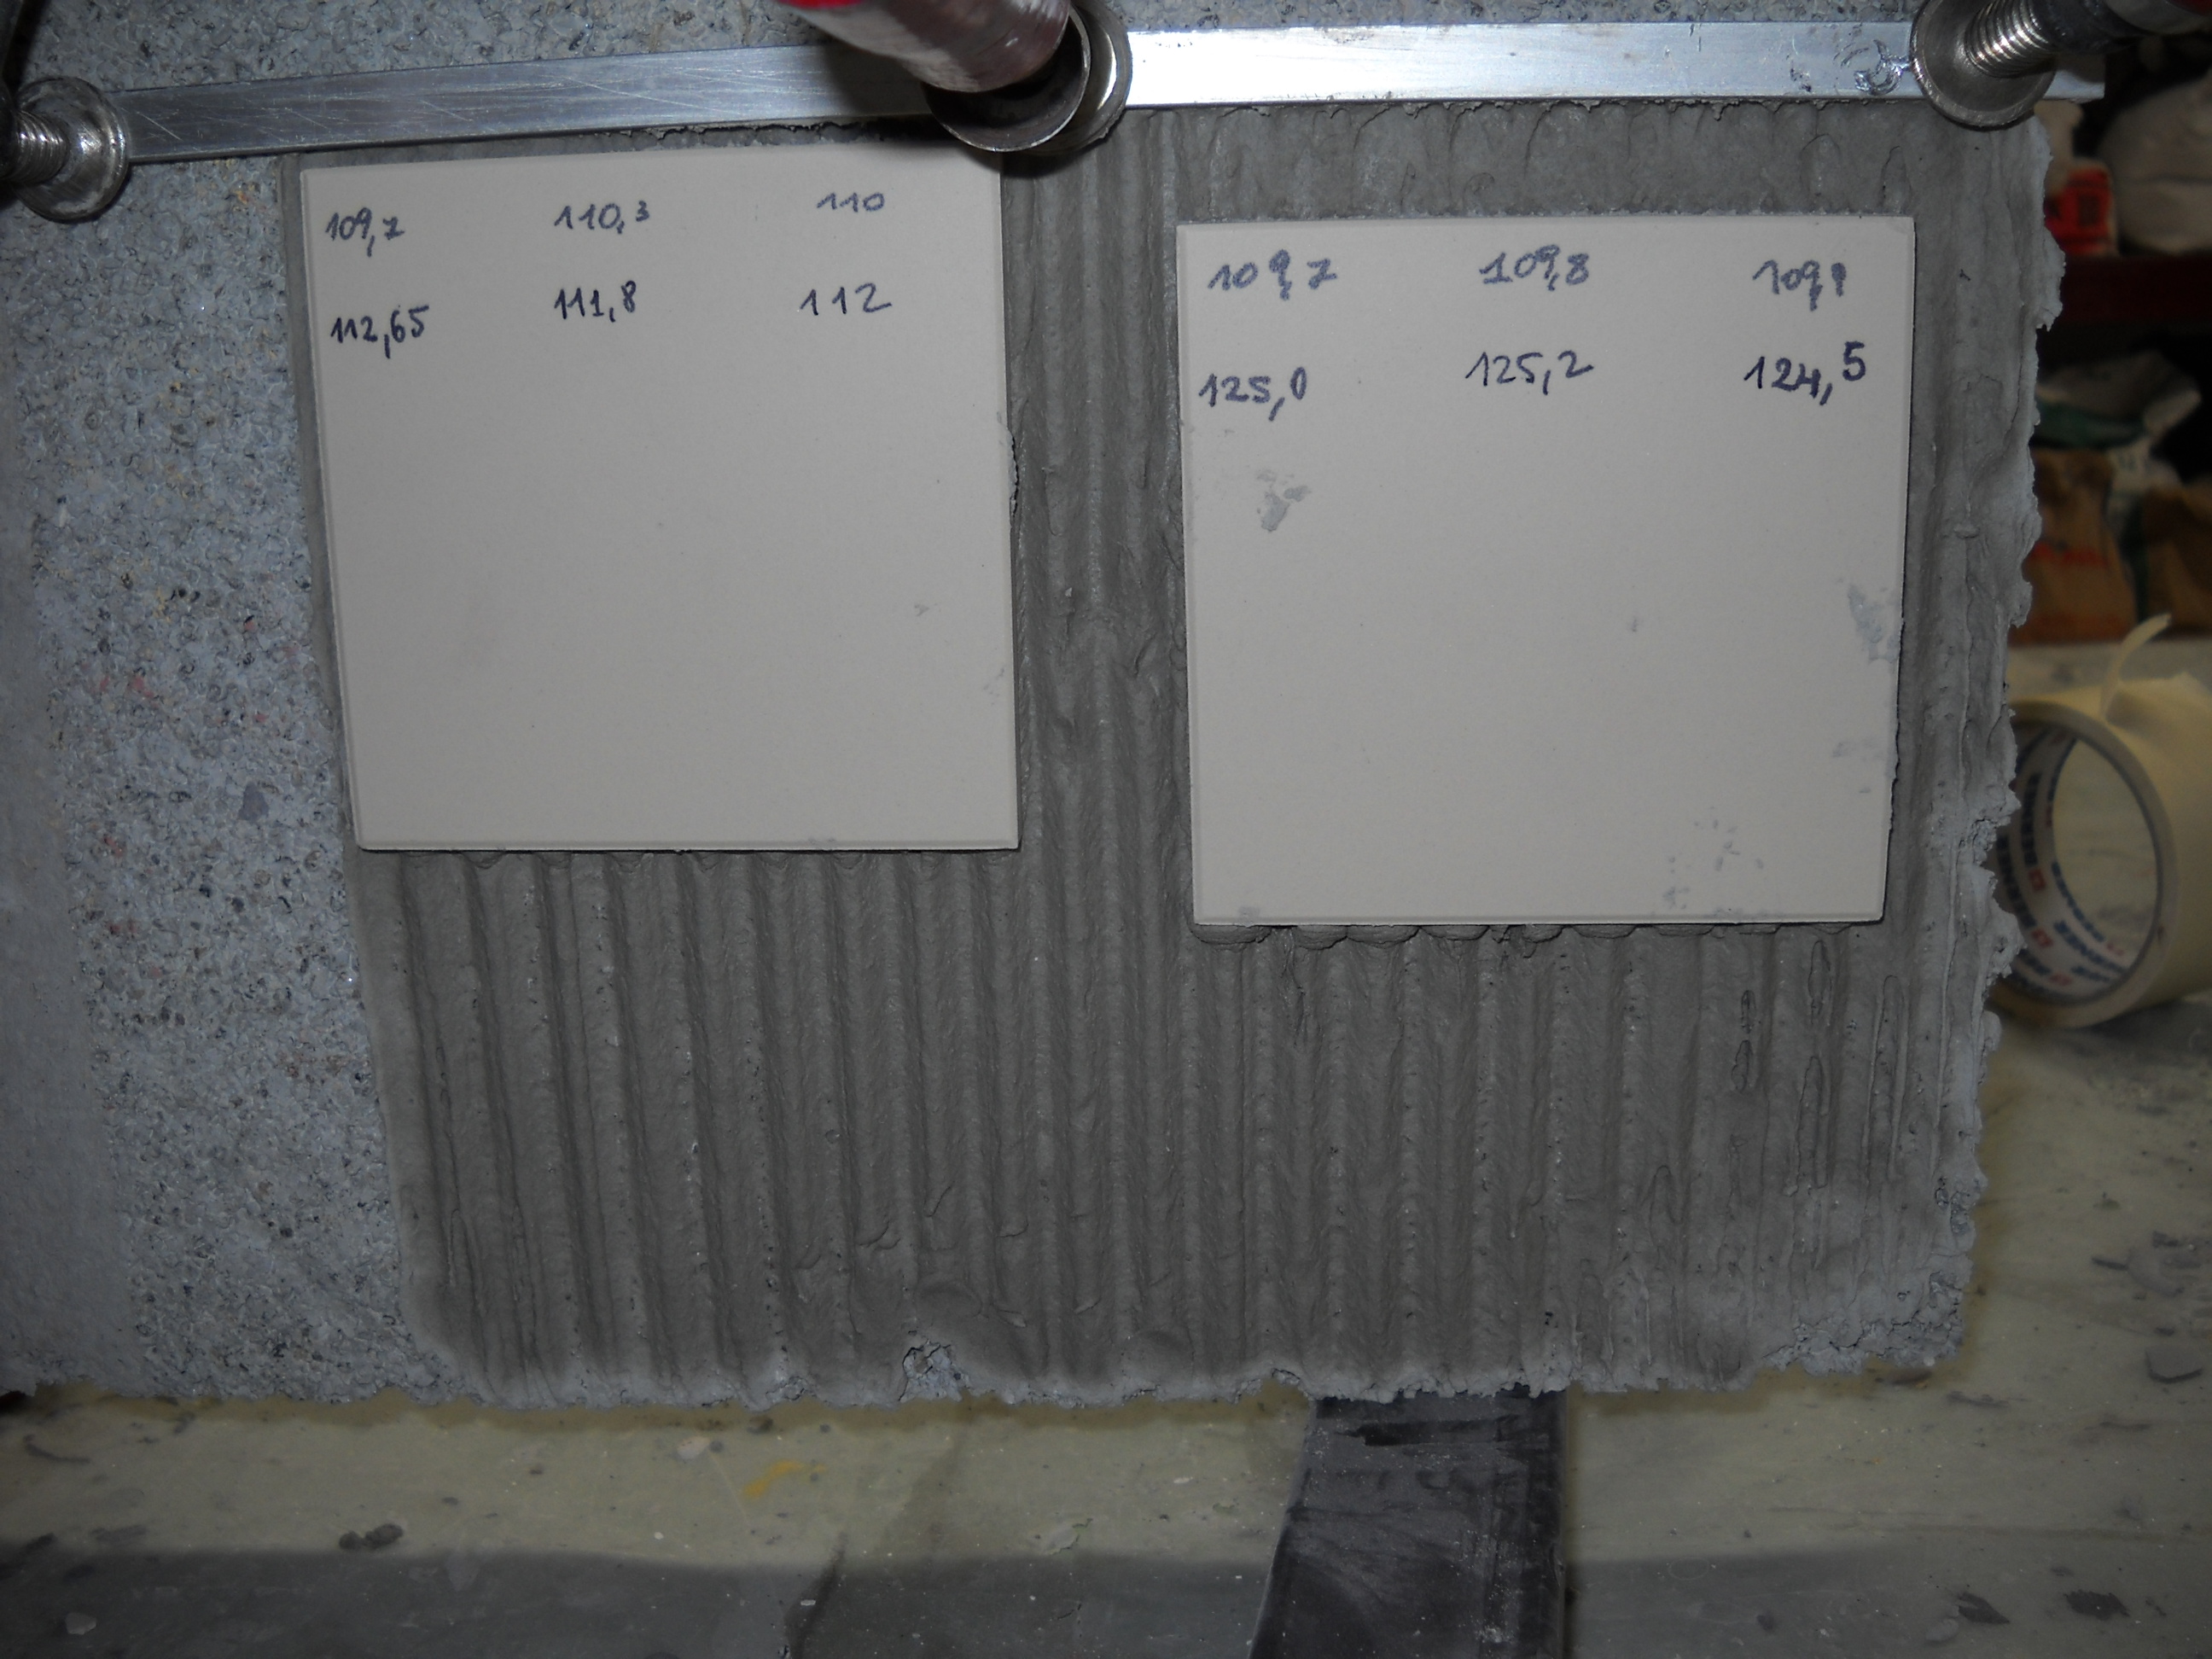 109,7 110,3 110
112,65 111,8 112
109,7 109,8
125,0 125,2 124,5